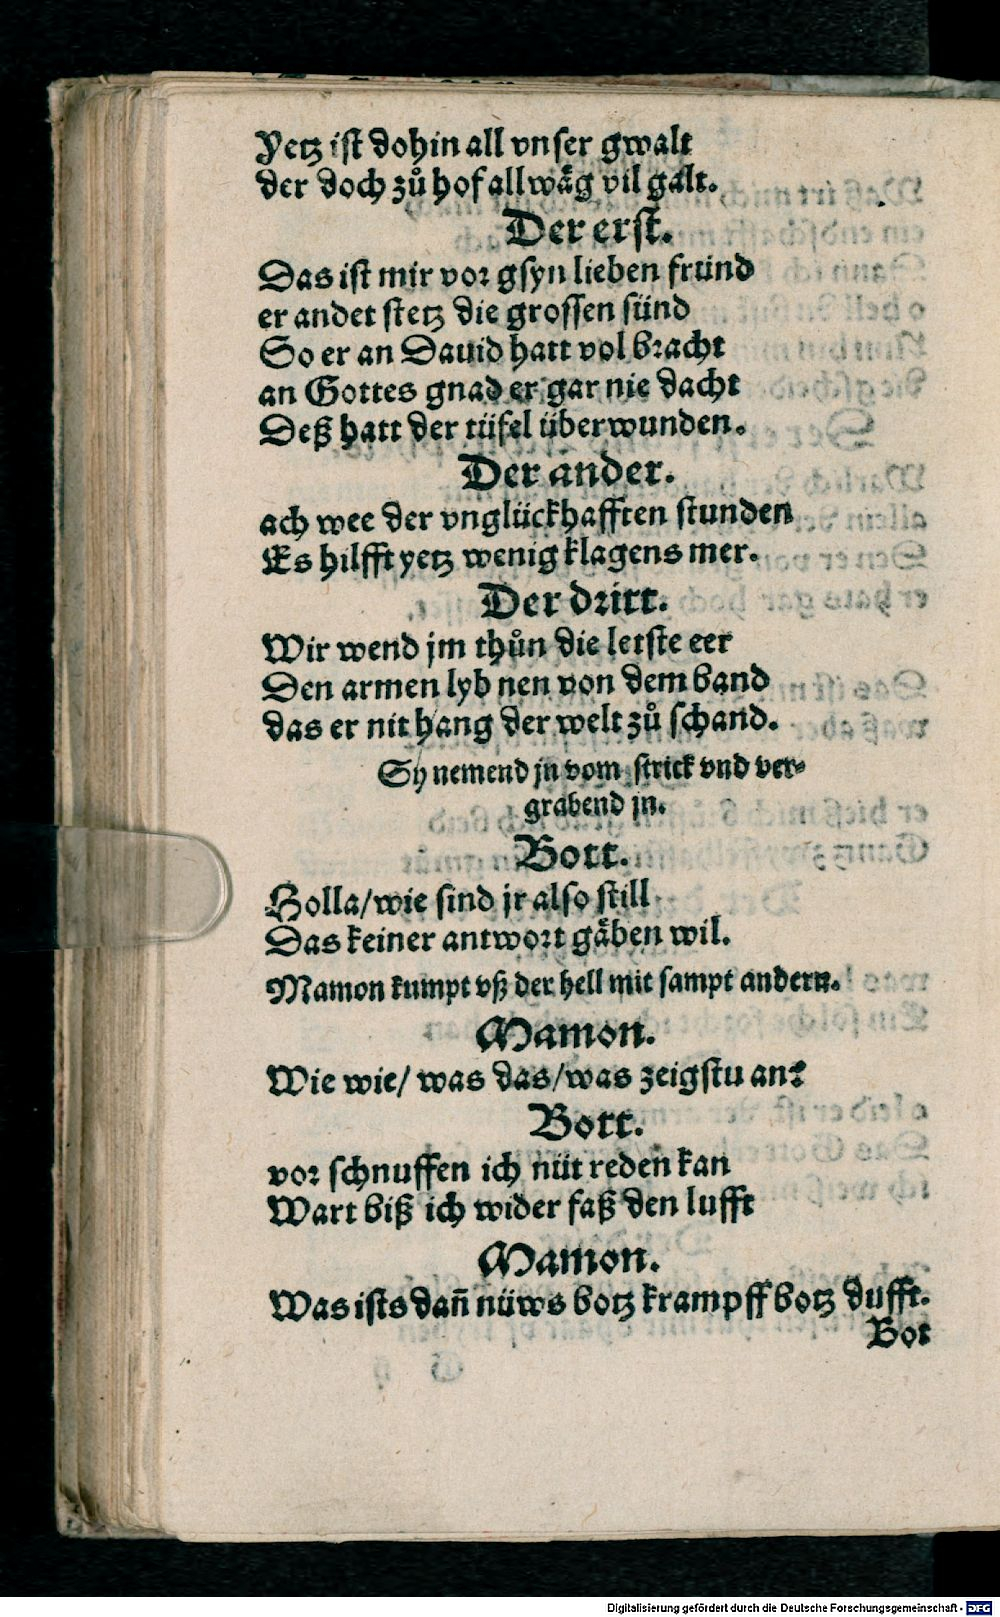 Yetz ist dohin all vnser gwalt
der doch zů hof allwäg vil galt.
Der erst.
Das ist mir vor gsyn lieben fründ
er andet stetz die grossen sünd
So er an Dauid hatt vol bracht
an Gottes gnad er gar nie dacht
Deß hatt der tüfel überwunden.
Der ander.
ach wee der vnglückhafften stunden
Es hilfft yetz wenig klagens mer.
Der dritt.
Wir wend jm thůn die letste eer
Den armen lyb nen von dem band
das er nit hang der welt zů schand.
Sy nemend jn vom strick vnd ver-
grabend jn.
Bott.
Holla/wie sind jr also still
Das keiner antwort gäben wil.
Mamon kumpt vß der hell mit sampt andern.
Mamon.
Wie wie/ was das/was zeigstu an?
Bott.
vor schnuffen ich nüt reden kan
Wart biß ich wider faß den lufft
Mamon.
Was ists dañ nüws botz krampff botz dufft.
Bot
Digitalisierung gefördert durch die Deutsche Forschungsgemeinschaft - DFG